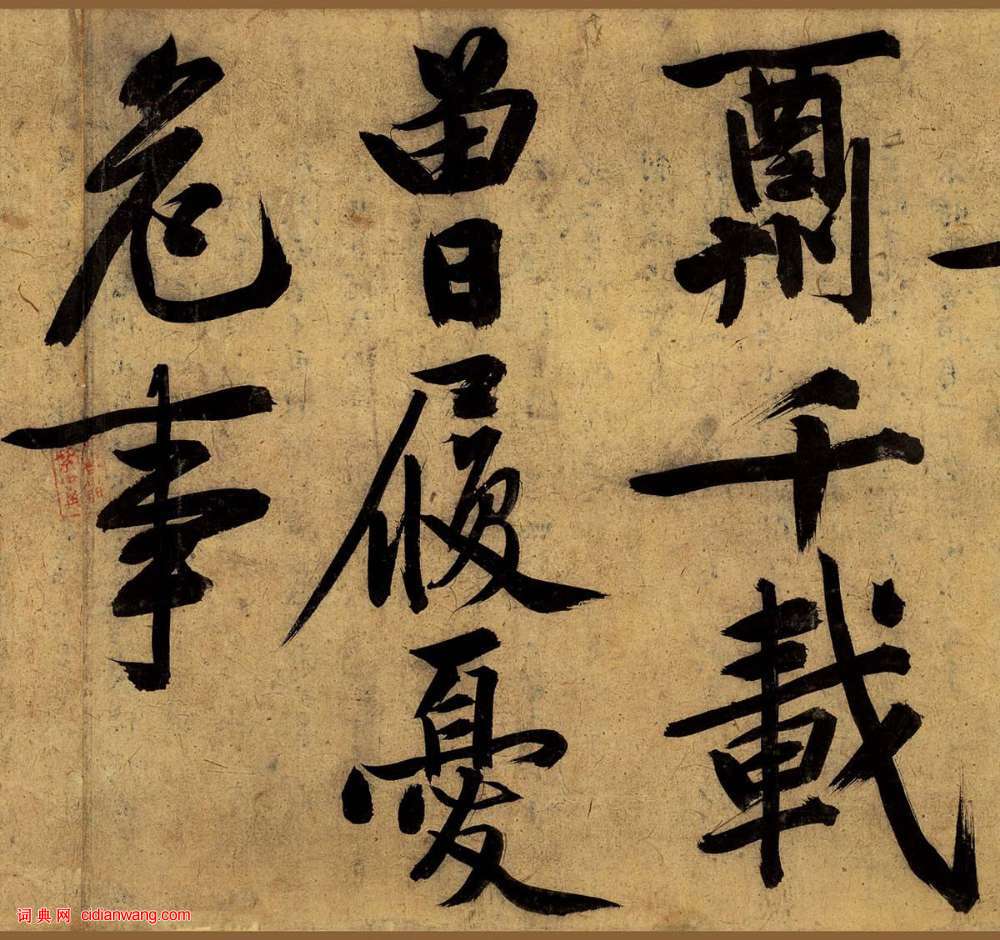 千載
曾履憂
危事
词典网 cidianwang.com